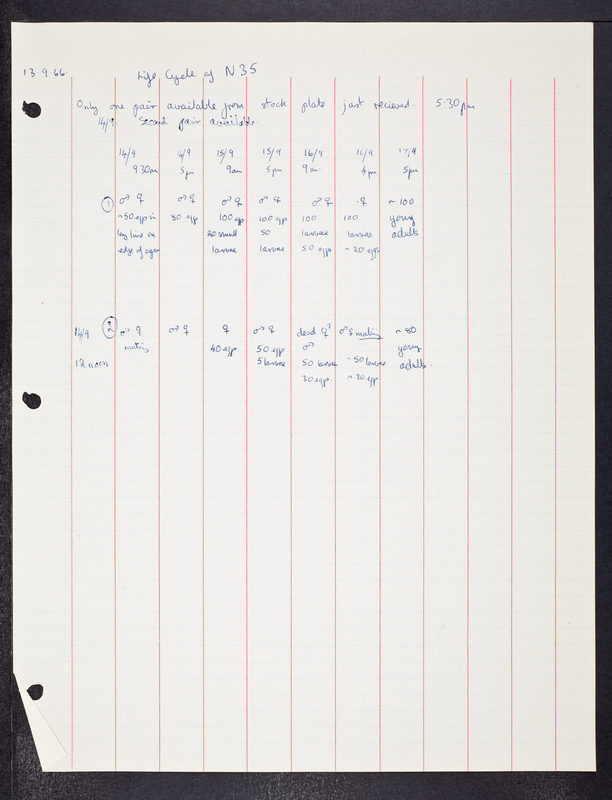 13.9.66 Life Cycle of N35
Only one pair available from stock plate just recieved. 5.30pm
14/9 Second pair available.
14/9 14/9 15/9 15/9 16/9 16/9 17/9
9.30am 5pm 9am 5pm 9am 4pm 5pm
① ♂ ♀ ♂ ♀ ♂ ♀ ♂ ♀ ♂ ♀ ♀ ~100
~50 eggs in 80 eggs 100 eggs 100 eggs 100 100 young
long line on 20 small 50 larvae larvae adults
edge of agar larvae larvae 50 eggs ~20 eggs
14/9 ② ♂ ♀ ♂ ♀ ♀ ♂ ♀ dead ♀? ♂ ♀ mating ~80
mating 40 eggs 50 eggs ♂ young
12 noon 5 larvae 50 larvae ~50 larvae adults.
30 eggs ~20 eggs